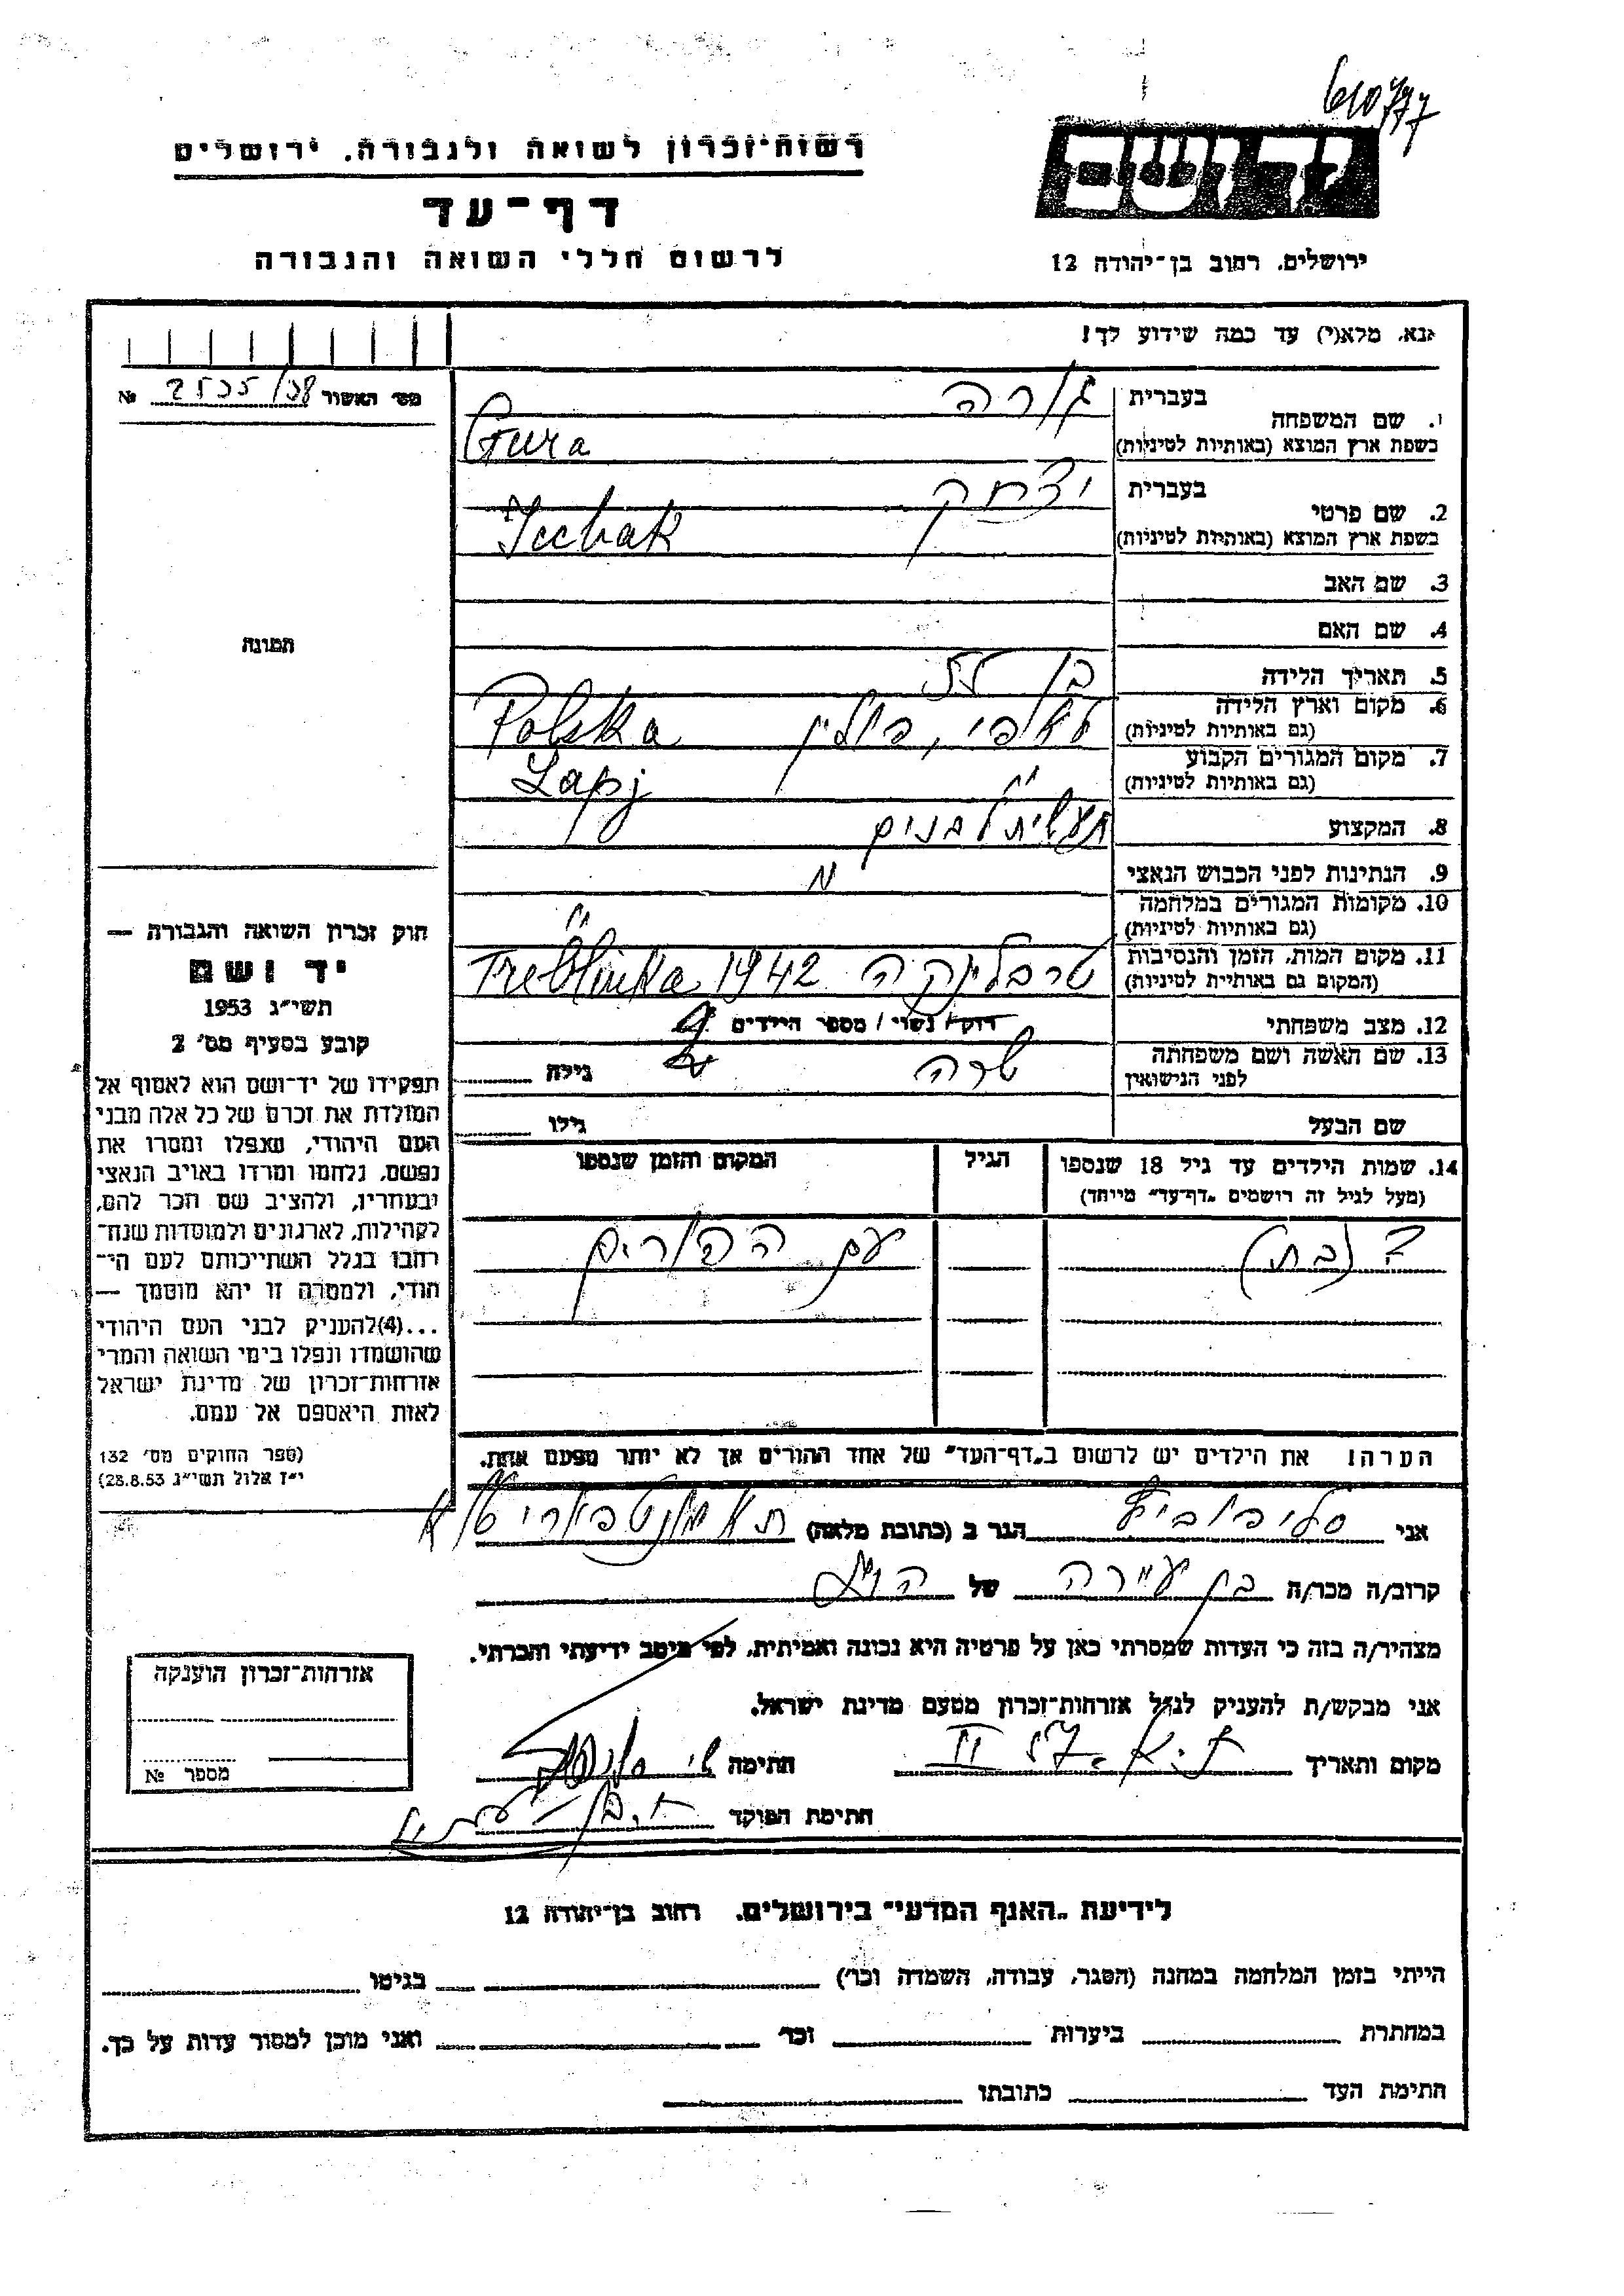 610777
רשות־זכרון לשואה ולגבורה, ירושלים
דף־עד
לרשום חללי השואה והגבורה
יד ושם
ירושלים, רחוב בן־יהודה 12
אנא, מלא(י) עד כמה שידוע לך!
מס' האשור 2535/38 №
1. שם המשפחה בעברית גורה
בשפת ארץ המוצא (באותיות לטיניות) Gura
2. שם פרטי בעברית יצחק
בשפת ארץ המוצא (באותיות לטיניות) Icchak
3. שם האב
4. שם האם
5. תאריך הלידה בן
6. מקום וארץ הלידה פולין Polska
(גם באותיות לטיניות)
7. מקום המגורים הקבוע Lapj
(גם באותיות לטיניות)
8. המקצוע
9. הנתינות לפני הכבוש הנאצי
10. מקומות המגורים במלחמה
(גם באותיות לטיניות)
11. מקום המות, הזמן והנסיבות טרבלינקה 1942 Treblinka
(המקום גם באותיות לטיניות)
12. מצב משפחתי רוק/ נשוי / מספר הילדים
13. שם האשה ושם משפחתה שרה גילה
לפני הנישואין
שם הבעל גילו
14. שמות הילדים עד גיל 18 שנספו הגיל המקום והזמן שנספו
(מעל לגיל זה רושמים „דף־עד" מיוחד)
(בת) עם ההורים
הערה! את הילדים יש לרשום ב„דף־העד" של אחד ההורים אך לא יותר מפעם אחת.
תמונה
חוק זכרון השואה והגבורה —
יד ושם
תשי"ג 1953
קובע בסעיף מס' 2
תפקידו של יד־ושם הוא לאסוף אל
המולדת את זכרם של כל אלה מבני
העם היהודי, שנפלו ומסרו את
נפשם, נלחמו ומרדו באויב הנאצי
ובעוזריו, ולהציב שם וזכר להם,
לקהילות, לארגונים ולמוסדות שנח־
רבו בגלל השתייכותם לעם הי־
הודי, ולמטרה זו יהא מוסמך —
...(4)להעניק לבני העם היהודי
שהושמדו ונפלו בימי השואה והמרי
אזרחות־זכרון של מדינת ישראל
לאות היאספם אל עמם.
(ספר החוקים מס' 132
י"ז אלול תשי"ג 28.8.53)
אני הגר ב (כתובת מלאה)
קרוב/ה מכר/ה בן עיירה של
מצהיר/ה בזה כי העדות שמסרתי כאן על פרטיה היא נכונה ואמיתית, לפי מיטב ידיעתי והכרתי.
אני מבקש/ת להעניק לנ"ל אזרחות־זכרון מטעם מדינת ישראל.
מקום ותאריך חתימה
חתימת הפוקד
אזרחות־זכרון הוענקה
מספר №
לידיעת „האגף המדעי" בירושלים, רחוב בן־יהודה 12
הייתי בזמן המלחמה במחנה (הסגר, עבודה, השמדה וכד') בגיטו
במחתרת ביערות וכד' ואני מוכן למסור עדות על כך.
חתימת העד כתובתו